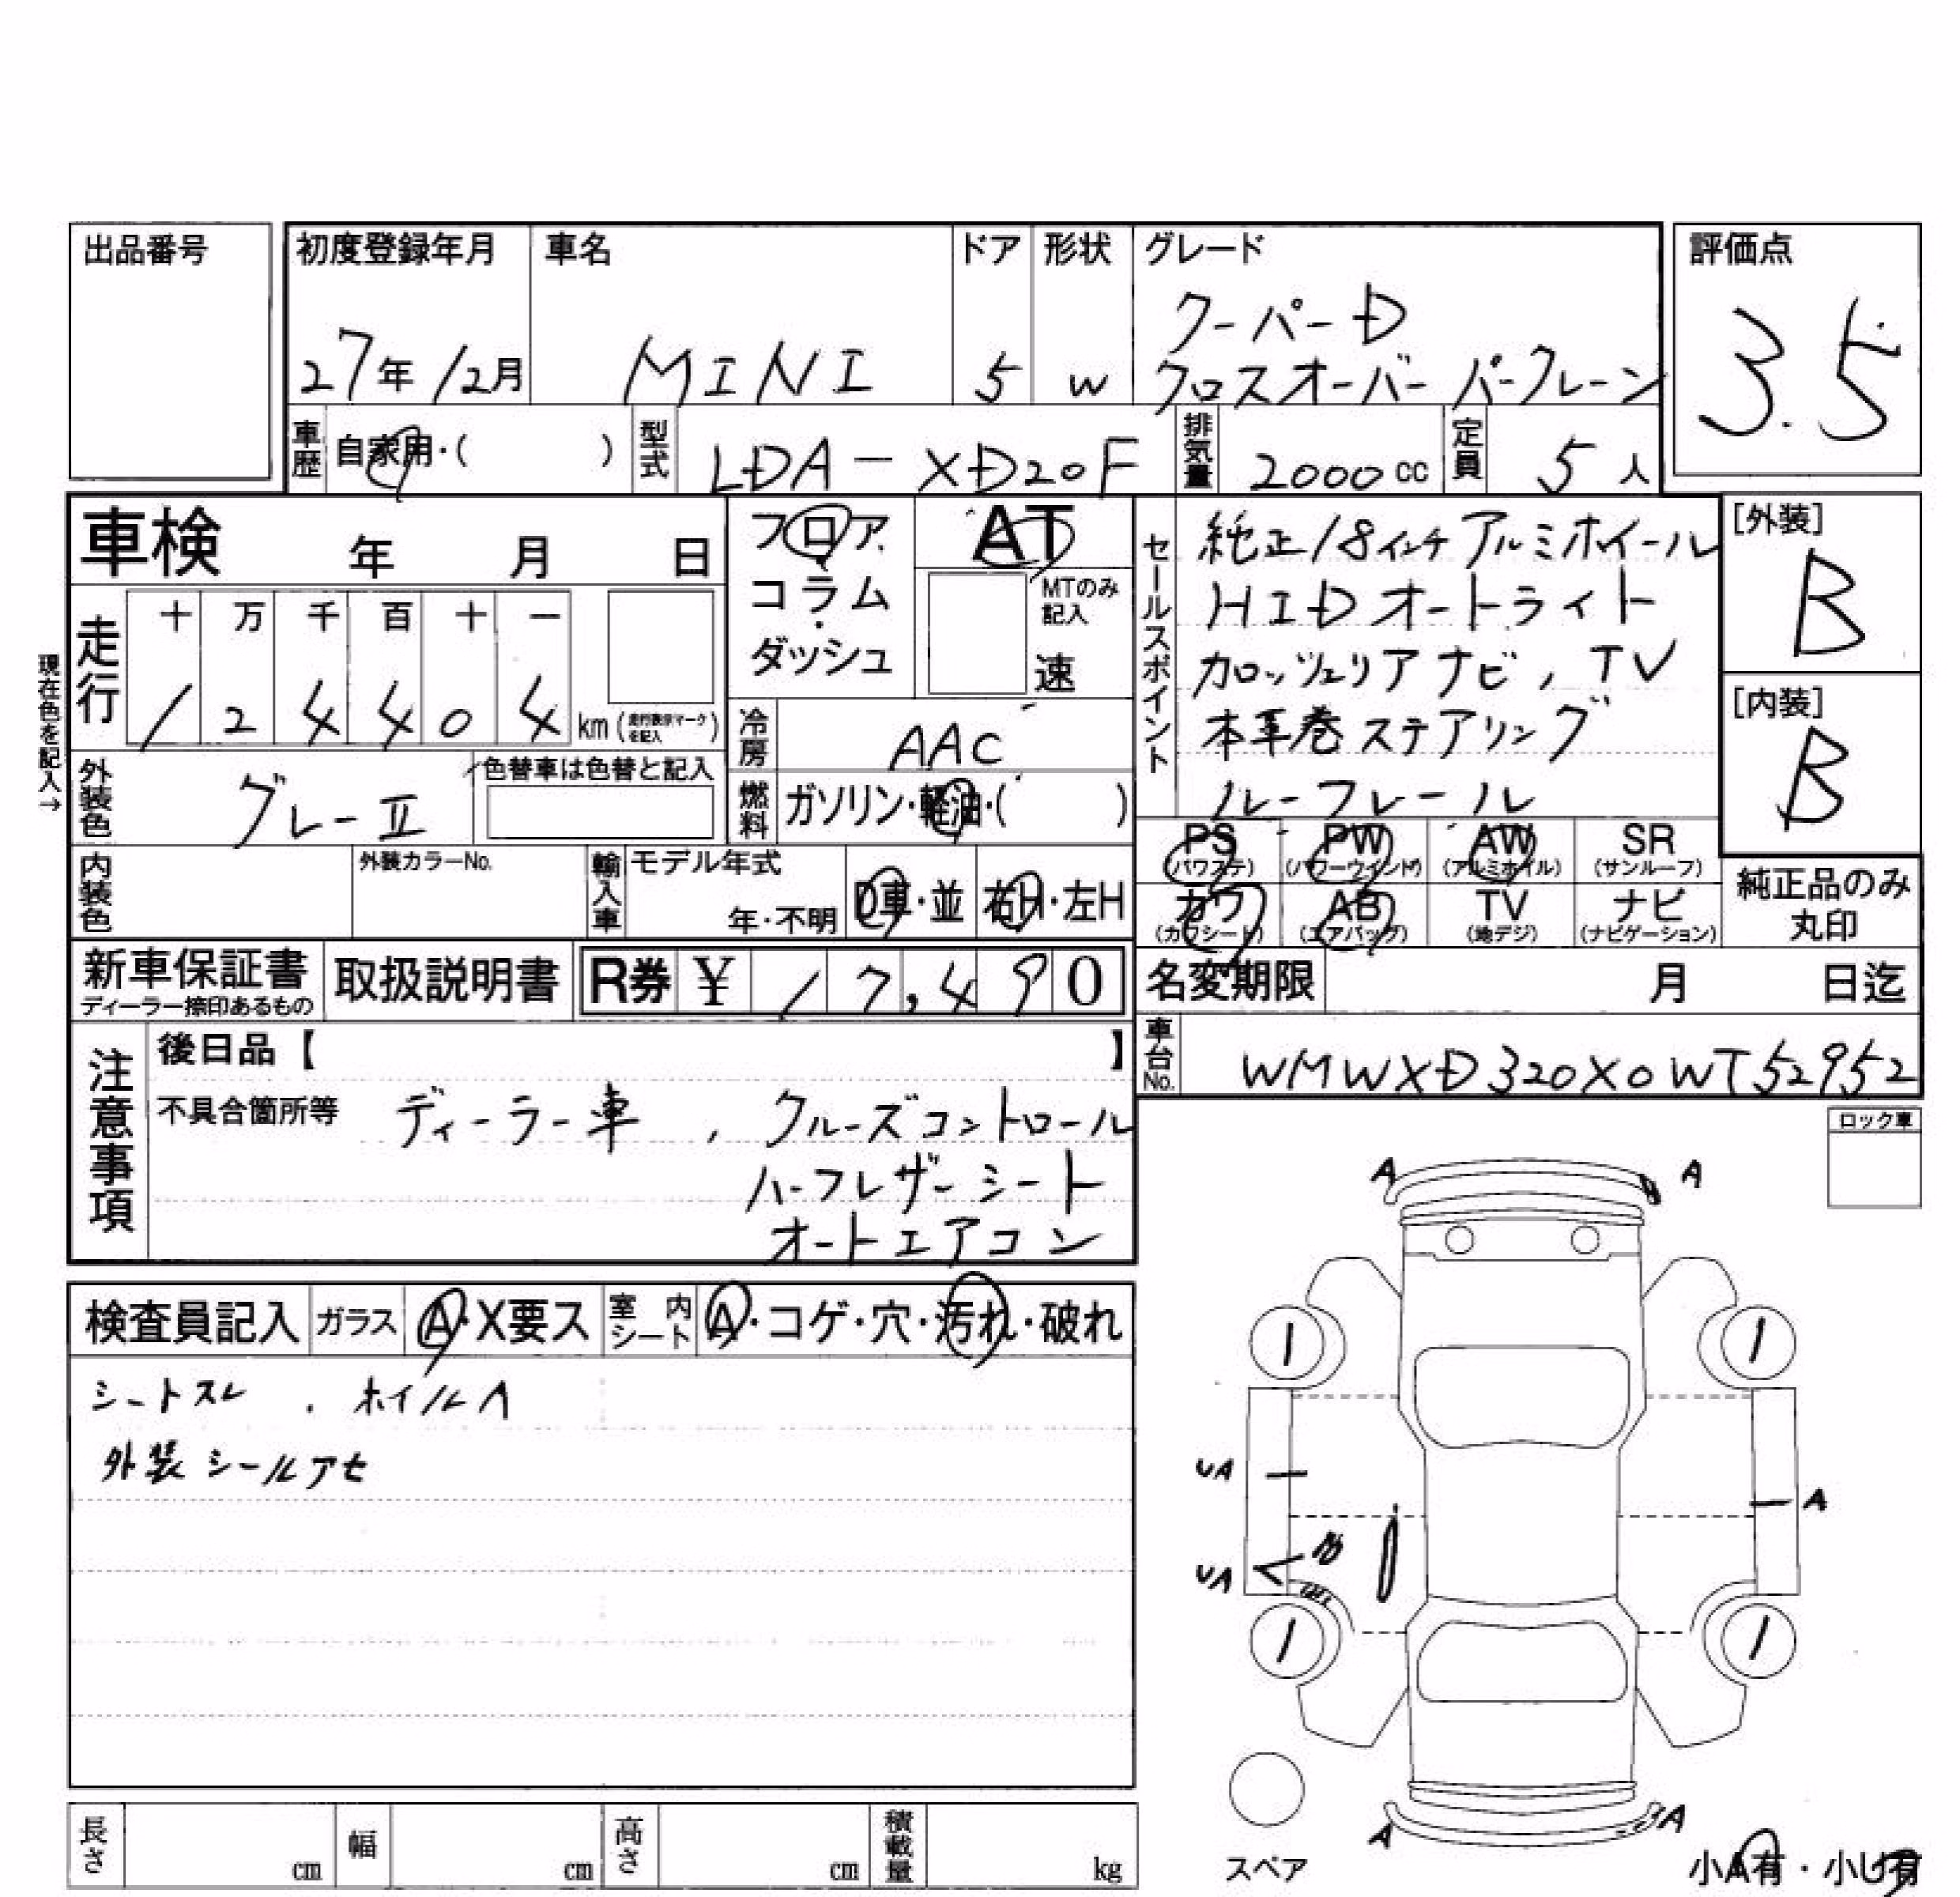 出品番号
初度登録年月 車名 ドア 形状 グレード 評価点
クーパーD
27年12月 MINI 5 W クロスオーバー パークレーン 3.5
車歴 自家用・( ) 型式 LDA-XD20F 排気量 2000cc 定員 5人
車検 年 月 日
フロア・コラム・ダッシュ
AT
MTのみ記入 速
現在色を記入→
走行 十 万 千 百 十 一
1 2 4 4 0 4 km (走行表示マークを記入)
冷房 AAC
燃料 ガソリン・軽油・( )
外装色 グレーII
色替車は色替と記入
内装色 外装カラーNo.
輸入車 モデル年式 年・不明 D車・並 右H・左H
セールスポイント
純正18インチアルミホイール
HIDオートライト
カロッツェリアナビ, TV
本革巻ステアリング
ルーフレール
[外装] B
[内装] B
PS (パワステ) PW (パワーウインド) AW (アルミホイル) SR (サンルーフ)
カワ (カワシート) AB (エアバッグ) TV (地デジ) ナビ (ナビゲーション)
純正品のみ丸印
新車保証書 ディーラー捺印あるもの 取扱説明書 R券 ¥ 17,490
名変期限 月 日迄
車台No. WMWXD320X0WT52952
注意事項
後日品【 】
不具合箇所等 ディーラー車, クルーズコントロール
ハーフレザーシート
オートエアコン
ロック車
検査員記入 ガラス A・X要ス 室内シート A・コゲ・穴・汚れ・破れ
シートスレ. ホイルA
外装シールアセ
A A
UA
A
UA
A A
スペア
小A有・小U有
長さ cm 幅 cm 高さ cm 積載量 kg